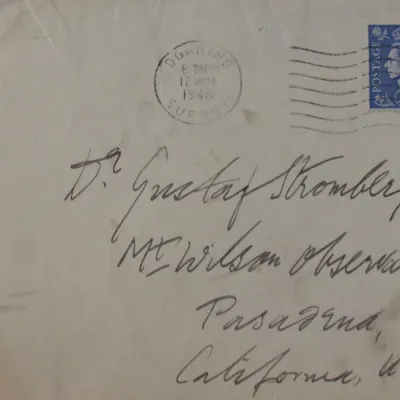 DORKING
1946
SURREY
POSTAGE
Dr Gustaf Stromber
Mt Wilson Observa
Pasadena,
California, U